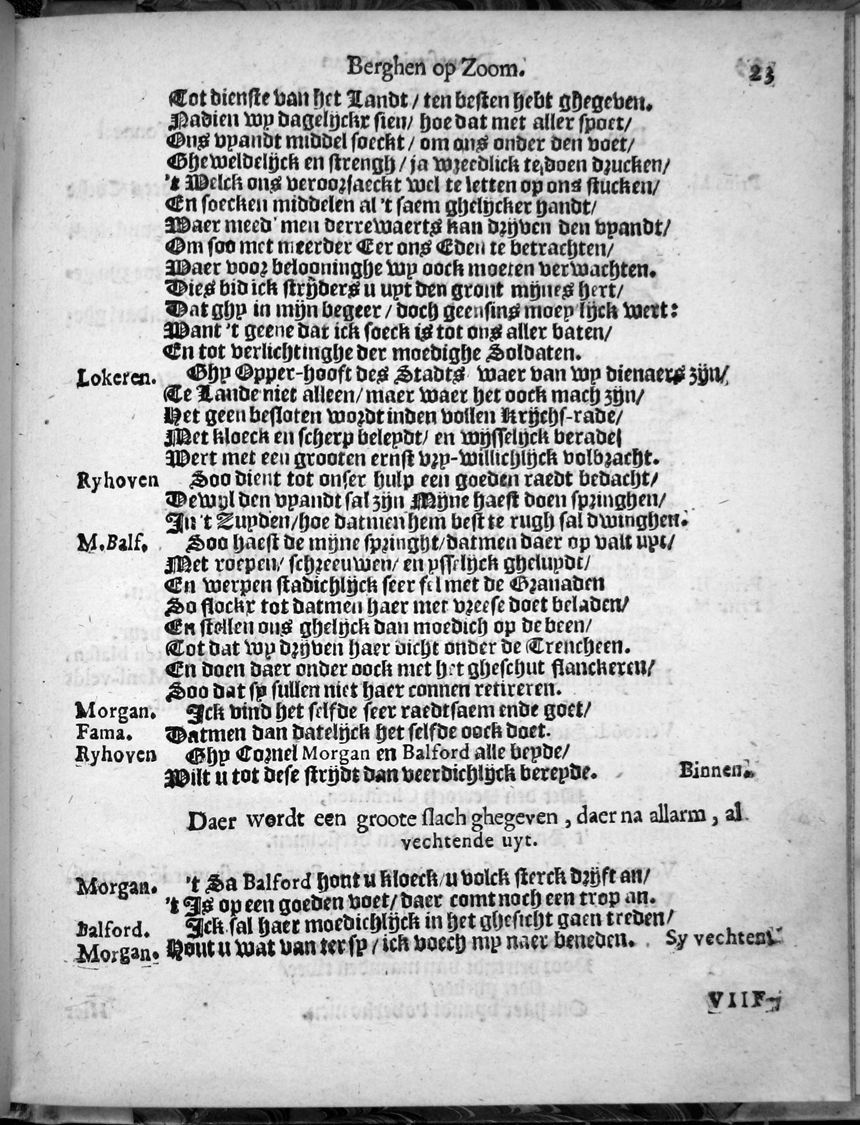 Berghen op Zoom. 23
Tot dienste van het Landt / ten besten hebt ghegeven.
Nadien wy dagelijckx sien / hoe dat met aller spoet /
Ons vyandt middel soeckt / om ons onder den voet /
Gheweldelijck en strengh / ja wreedlick te doen drucken /
't Welck ons veroorsaeckt wel te letten op ons stucken /
En soecken middelen al 't saem ghelijcker handt /
Waer meed' men derrewaerts kan drijven den vyandt /
Om soo met meerder Eer ons Eden te betrachten /
Waer voor belooninghe wy oock moeten verwachten.
Dies bid ick strijders u uyt den gront mijnes hert /
Dat ghy in mijn begeer / doch geensins moeylijck wert:
Want 't geene dat ick soeck is tot ons aller baten /
En tot verlichtinghe der moedighe Soldaten.
Lokeren. Ghy Opper-hooft des Stadts waer van wy dienaers zijn /
Te Lande niet alleen / maer waer het oock mach zijn /
Het geen besloten wordt inden vollen Krijchs-rade /
Met kloeck en scherp beleydt / en wijsselijck berade
Wert met een grooten ernst vry-willichlijck volbracht.
Ryhoven Soo dient tot onser hulp een goeden raedt bedacht /
Dewyl den vyandt sal zijn Mijne haest doen springhen /
In 't Zuyden / hoe datmen hem best te rugh sal dwinghen.
M. Balf. Soo haest de mijne springht / datmen daer op valt uyt /
Met roepen / schreeuwen / en ysselijck gheluydt /
En werpen stadichlijck seer fel met de Granaden
So flockx tot datmen haer met vreese doet beladen /
En stellen ons ghelijck dan moedich op de been /
Tot dat wy drijven haer dicht onder de Trencheen.
En doen daer onder oock met het gheschut flanckeren /
Soo dat sy sullen niet haer connen retireren.
Morgan. Ick vind het selfde seer raedtsaem ende goet /
Fama. Datmen dan datelijck het selfde oock doet.
Ryhoven Ghy Cornel Morgan en Balford alle beyde /
Wilt u tot dese strijdt dan veerdichlijck bereyde. Binnen.
Daer wordt een groote slach ghegeven, daer na allarm, al
vechtende uyt.
Morgan. 't Sa Balford hout u kloeck / u volck sterck drijft an /
't Is op een goeden voet / daer comt noch een trop an.
Balford. Ick sal haer moedichlijck in het ghesicht gaen treden /
Morgan. Hout u wat van ter sy / ick voech my naer beneden. Sy vechten.
VIIF-